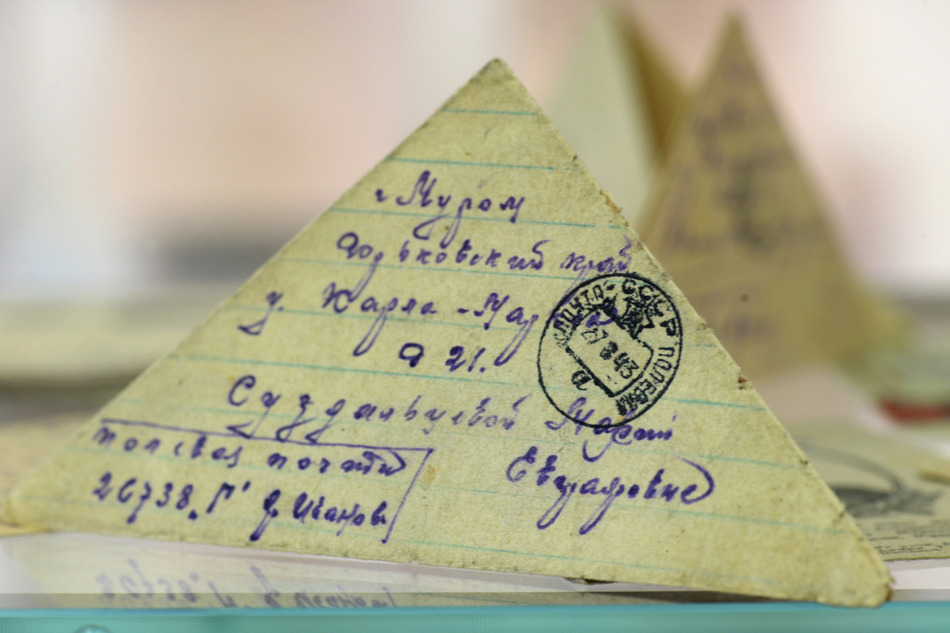 г. Муром
Горьковский край
у. Карла-Маркса
д 21.
Суздальцевой Марии
Евграфовне
полевая почта
26738 „Г" Д. Иванов
ПОЧТА-СССР
ПОЛЕВАЯ